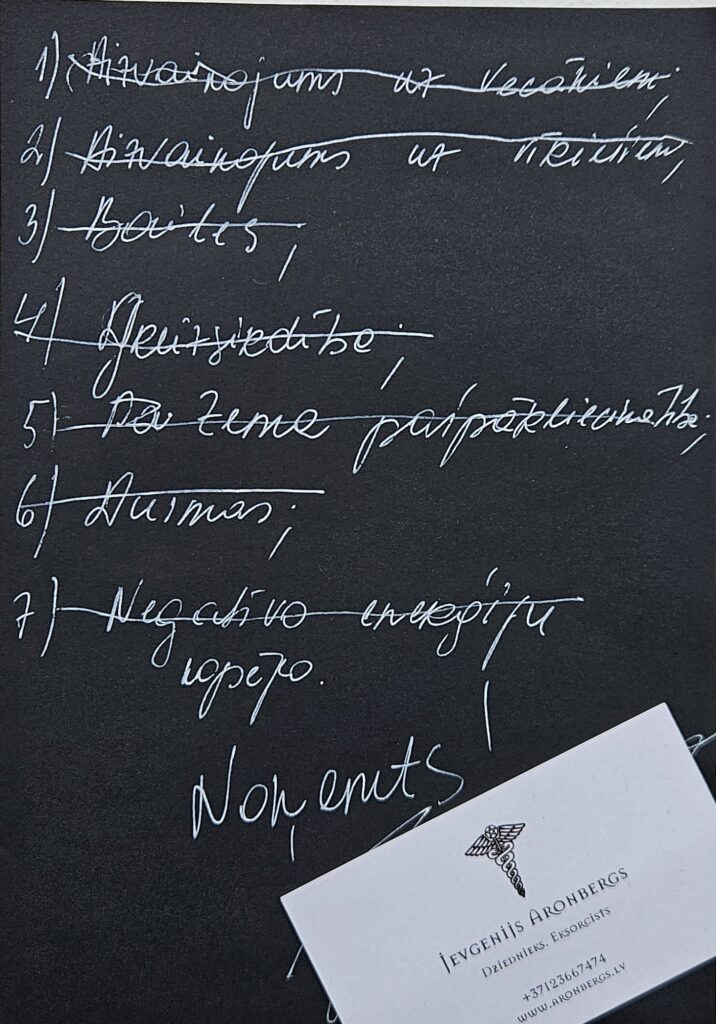 1) Aizvainojums uz vecākiem;
2) Aizvainojums uz vīriešiem;
3) Bailes;
4) Greizsirdība;
5) Pa zema pašpārliecinātība;
6) Dusmas;
7) Negatīvo enerģiju
Noņemts
Jevgenijs Aronbergs
Dziednieks. Eksorcists
+37123667474
www.aronbergs.lv